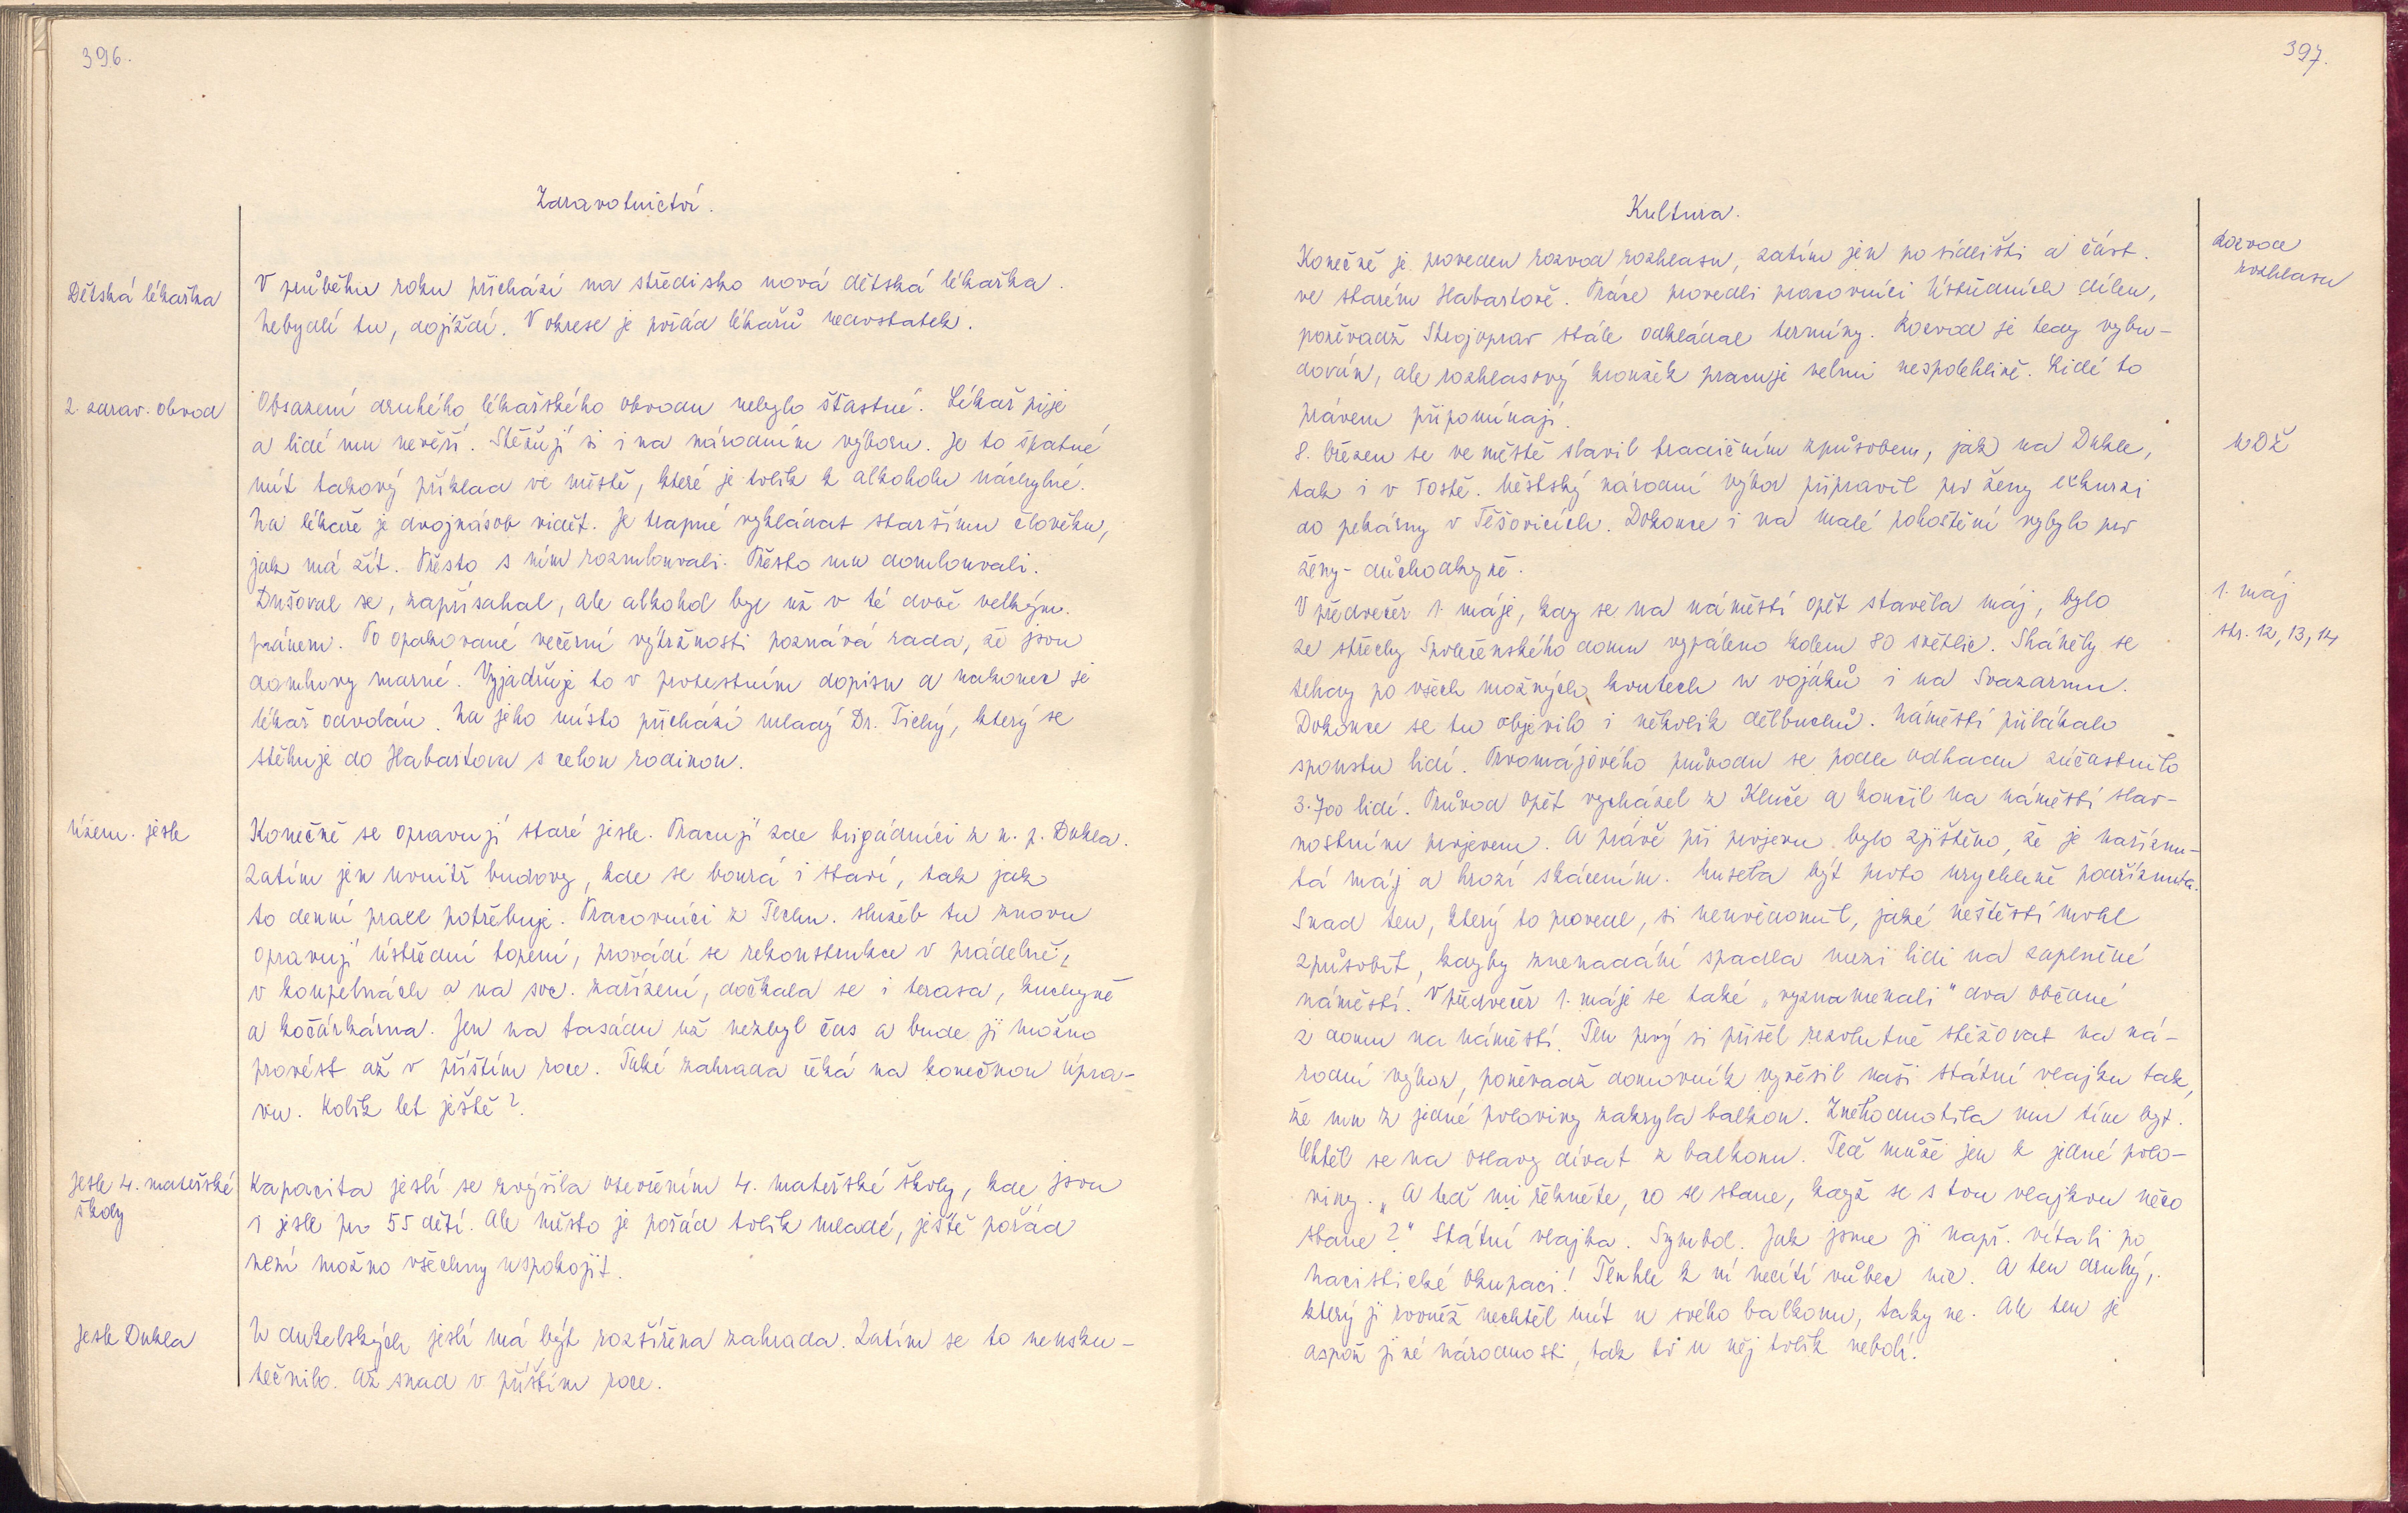 396.
Zdravotnictví.
Dětská lékařka
V průběhu roku přichází na středisko nová dětská lékařka.
Nebydlí tu, dojíždí. V okrese je pořád lékařů nedostatek.
2. zdrav. obvod
Obsazení druhého lékařského obvodu nebylo šťastné. Lékař pije
a lidé mu nevěří. Stěžují si i na národním výboru. Je to špatné
mít takový příklad ve městě, které je tolik k alkoholu náchylné.
Na lékaře je dvojnásob vidět. Je trapné vykládat staršímu člověku,
jak má žít. Přesto s ním rozmlouvali. Přesto mu domlouvali.
Dušoval se, zapřísahal, ale alkohol byl už v té době velkým
pánem. Po opakované večerní výtržnosti poznává rada, že jsou
domluvy marné. Vyjadřuje to v protestním dopisu a nakonec je
lékař odvolán. Na jeho místo přichází mladý Dr. Tichý, který se
stěhuje do Habartova s celou rodinou.
Územ. jesle
Konečně se opravují staré jesle. Pracují zde brigádníci z n. p. Dukla.
Zatím jen uvnitř budovy, kde se bourá i staví, tak jak
to denní práce potřebuje. Pracovníci z Techn. služeb tu znovu
opravují ústřední topení, provádí se rekonstrukce v prádelně,
v koupelnách a na soc. zařízení, dočkala se i terasa, kuchyně
a kočárkárna. Jen na fasádu už nezbyl čas a bude ji možno
provést až v příštím roce. Také zahrada čeká na konečnou úpra-
vu. Kolik let ještě?
Jesle 4. mateřské
školy
Kapacita jeslí se zvýšila otevřením 4. mateřské školy, kde jsou
i jesle pro 55 dětí. Ale město je pořád tolik mladé, ještě pořád
není možno všechny uspokojit.
Jesle Dukla
U dukelských jeslí má být rozšířena zahrada. Zatím se to neusku-
tečnilo. Až snad v příštím roce.
397.
Kultura.
Rozvod
rozhlasu
Konečně je proveden rozvod rozhlasu, zatím jen po sídlišti a část.
ve starém Habartově. Práce provedli pracovníci Ústředních dílen,
poněvadž Strojoprav stále odkládal termíny. Rozvod je tedy vybu-
dován, ale rozhlasový kroužek pracuje velmi nespolehlivě. Lidé to
právem připomínají.
MDŽ
8. březen se ve městě slavil tradičním způsobem, jak na Dukle,
tak i v Tostě. Městský národní výbor připravil pro ženy exkurzi
do pekárny v Těšovicích. Dokonce i na malé pohoštění vybylo pro
ženy-důchodkyně.
1. máj
str. 12, 13, 14
V předvečer 1. máje, kdy se na náměstí opět stavěla máj, bylo
ze střechy Společenského domu vypáleno kolem 80 světlic. Sháněly se
tehdy po všech možných koutech u vojáků i na Svazarmu.
Dokonce se tu objevilo i několik dělbuchů. Náměstí přilákalo
spoustu lidí. Prvomájového průvodu se podle odhadu zúčastnilo
3.700 lidí. Průvod opět vycházel z Kluče a končil na náměstí slav-
nostním projevem. A právě při projevu bylo zjištěno, že je naříznu-
tá máj a hrozí skácením. Musela být proto urychleně podříznuta.
Snad ten, který to provedl, si neuvědomil, jaké neštěstí mohl
způsobit, kdyby znenadání spadla mezi lidi na zaplněné
náměstí. V předvečer 1. máje se také „vyznamenali" dva občané
z domu na náměstí. Ten prvý si přišel rezolutně stěžovat na ná-
rodní výbor, poněvadž domovník vyvěsil naši státní vlajku tak,
že mu z jedné poloviny zakryla balkon. Znehodnotila mu tím byt.
Chtěl se na oslavy dívat z balkonu. Teď může jen z jedné polo-
viny. „A teď mi řekněte, co se stane, když se s tou vlajkou něco
stane?" Státní vlajka. Symbol. Jak jsme ji např. vítali po
nacistické okupaci! Tenhle k ní necítí vůbec nic. A ten druhý,
který ji rovněž nechtěl mít u svého balkonu, taky ne. Ale ten je
aspoň jiné národnosti, tak to u něj tolik nebolí.